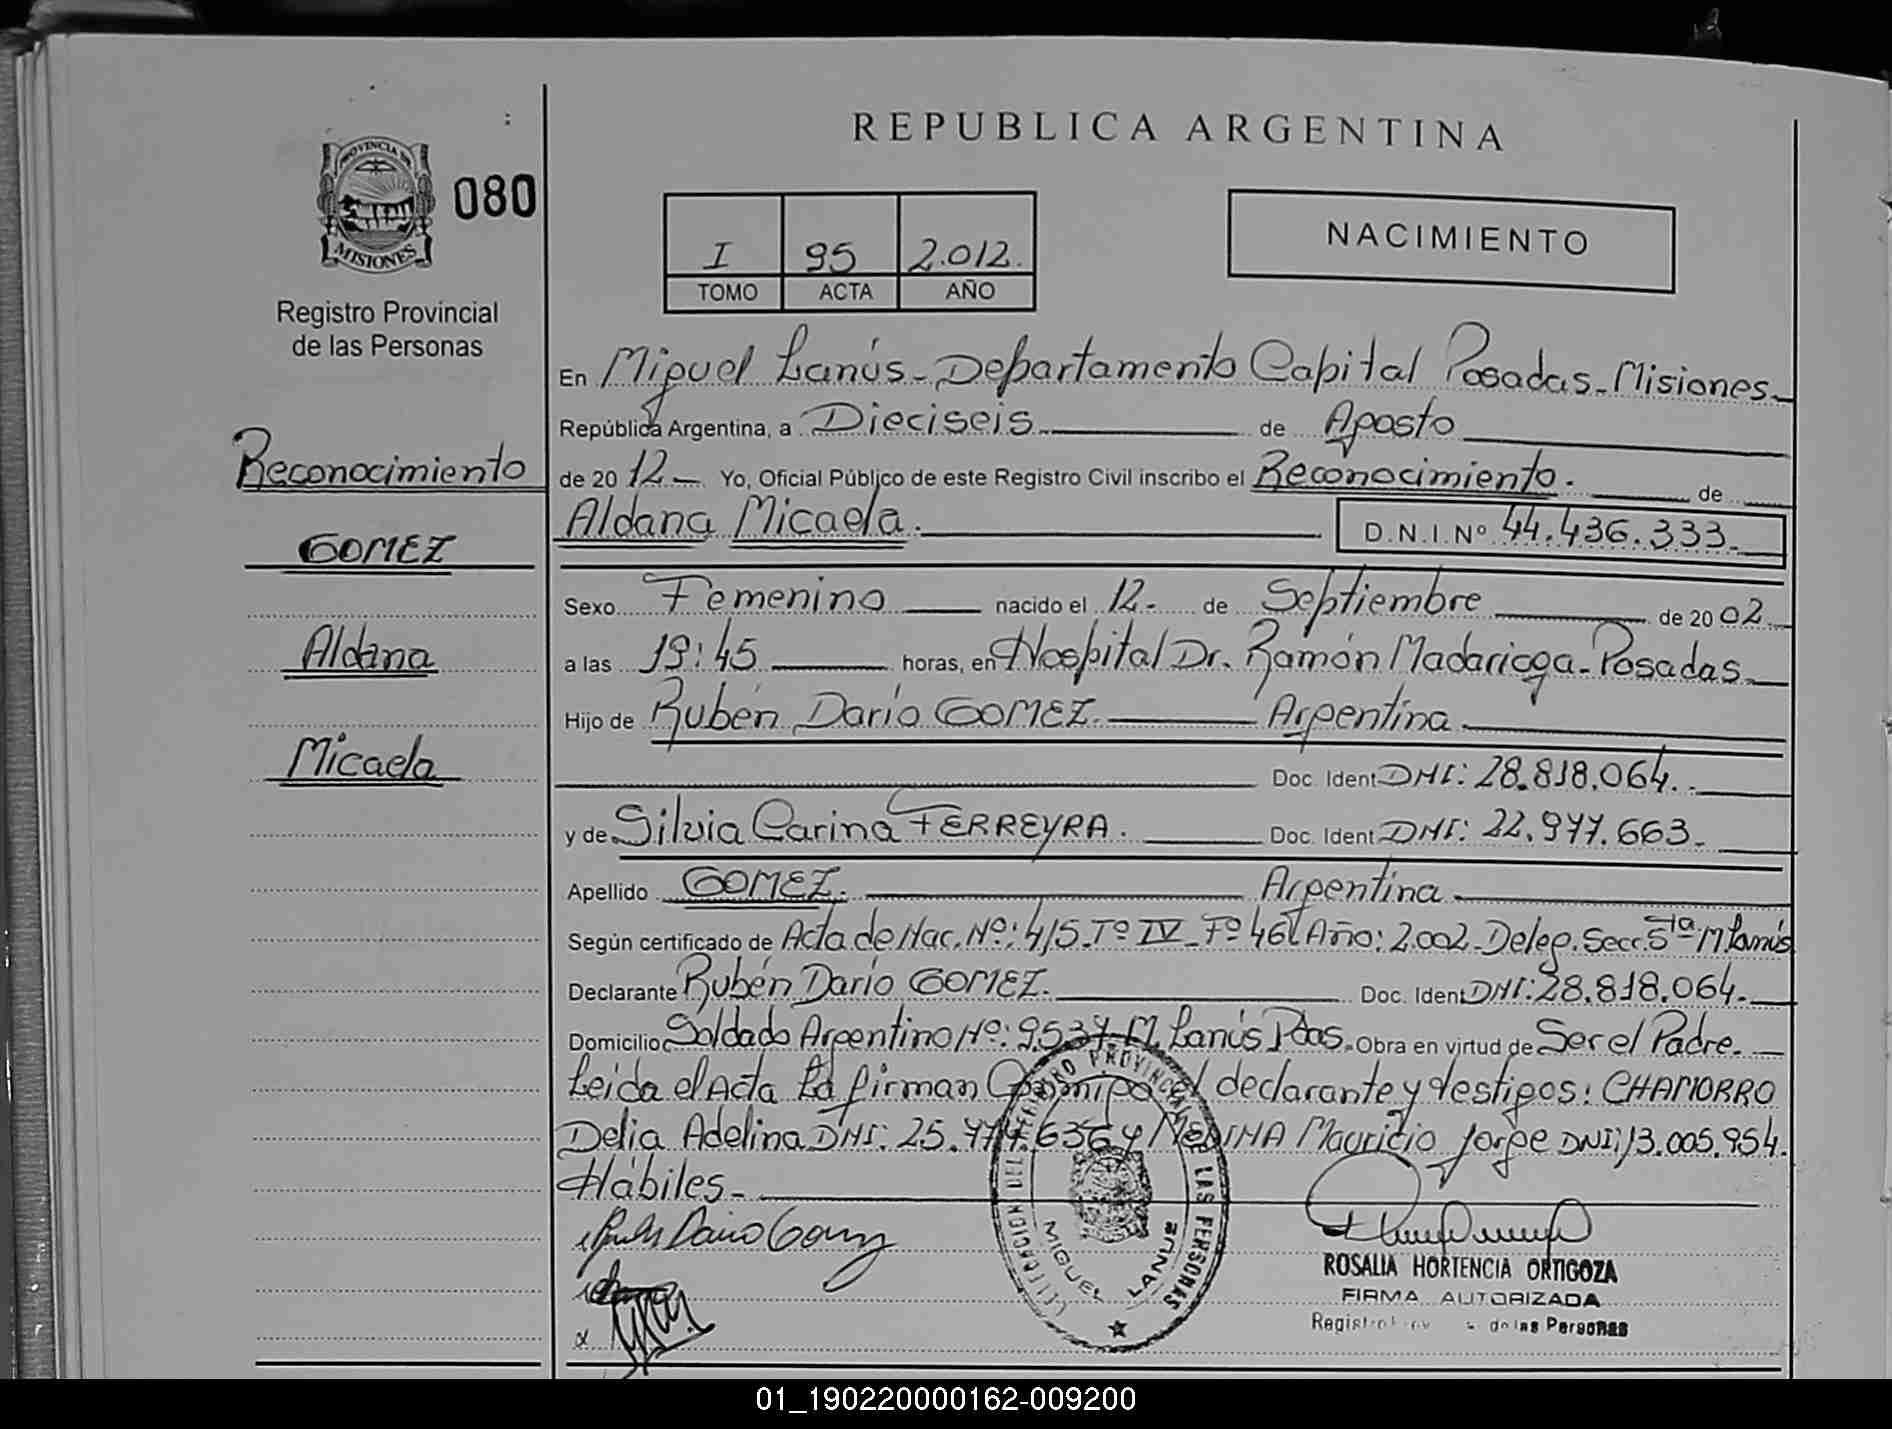 REPUBLICA ARGENTINA
PROVINCIA DE
MISIONES
080
Registro Provincial
de las Personas
I 95 2.012.
TOMO ACTA AÑO
NACIMIENTO
Reconocimiento
GOMEZ
Aldana
Micaela
En Miguel Lanús-Departamento Capital Posadas-Misiones-
República Argentina, a Dieciseis de Agosto
de 2012.- Yo, Oficial Público de este Registro Civil inscribo el Reconocimiento. de
Aldana Micaela. D.N.I.Nº 44.436.333.
Sexo Femenino nacido el 12.- de Septiembre de 2002.
a las 19:45 horas, en Hospital Dr. Ramón Madariaga-Posadas
Hijo de Rubén Darío GOMEZ. Argentina
Doc. Ident DNI: 28.818.064.
y de Silvia Carina FERREYRA. Doc. Ident DNI: 22.977.663.
Apellido GOMEZ. Argentina
Según certificado de Acta de Nac. Nº: 415-Tº IV-Fº 46 Año: 2.002-Deleg. Secc. 5ta M Lanús
Declarante Rubén Darío GOMEZ. Doc. Ident DNI: 28.818.064.
Domicilio Soldado Argentino Nº: 9537-M. Lanús Pdas. Obra en virtud de Ser el Padre.
Leida el Acta La firman Conmigo el declarante y testigos: CHAMORRO
Delia Adelina DNI: 25. .636 y MEDINA Mauricio Jorge DNI: 13.005.954.
Hábiles-
Rubén Dario Gomez
DELEGACION DEL REGISTRO PROVINCIAL DE LAS PERSONAS
MIGUEL LANUS
ROSALIA HORTENCIA ORTIGOZA
FIRMA AUTORIZADA
de las Personas
01_190220000162-009200